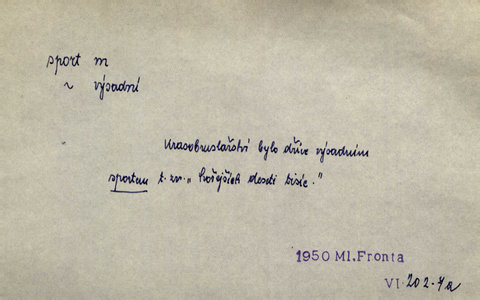 sport m
~ výsadní
Krasobruslařství bylo dříve výsadním
sportem t. zv. „hořejších deseti tisíc."
1950 Ml.Fronta
VI 202.4a